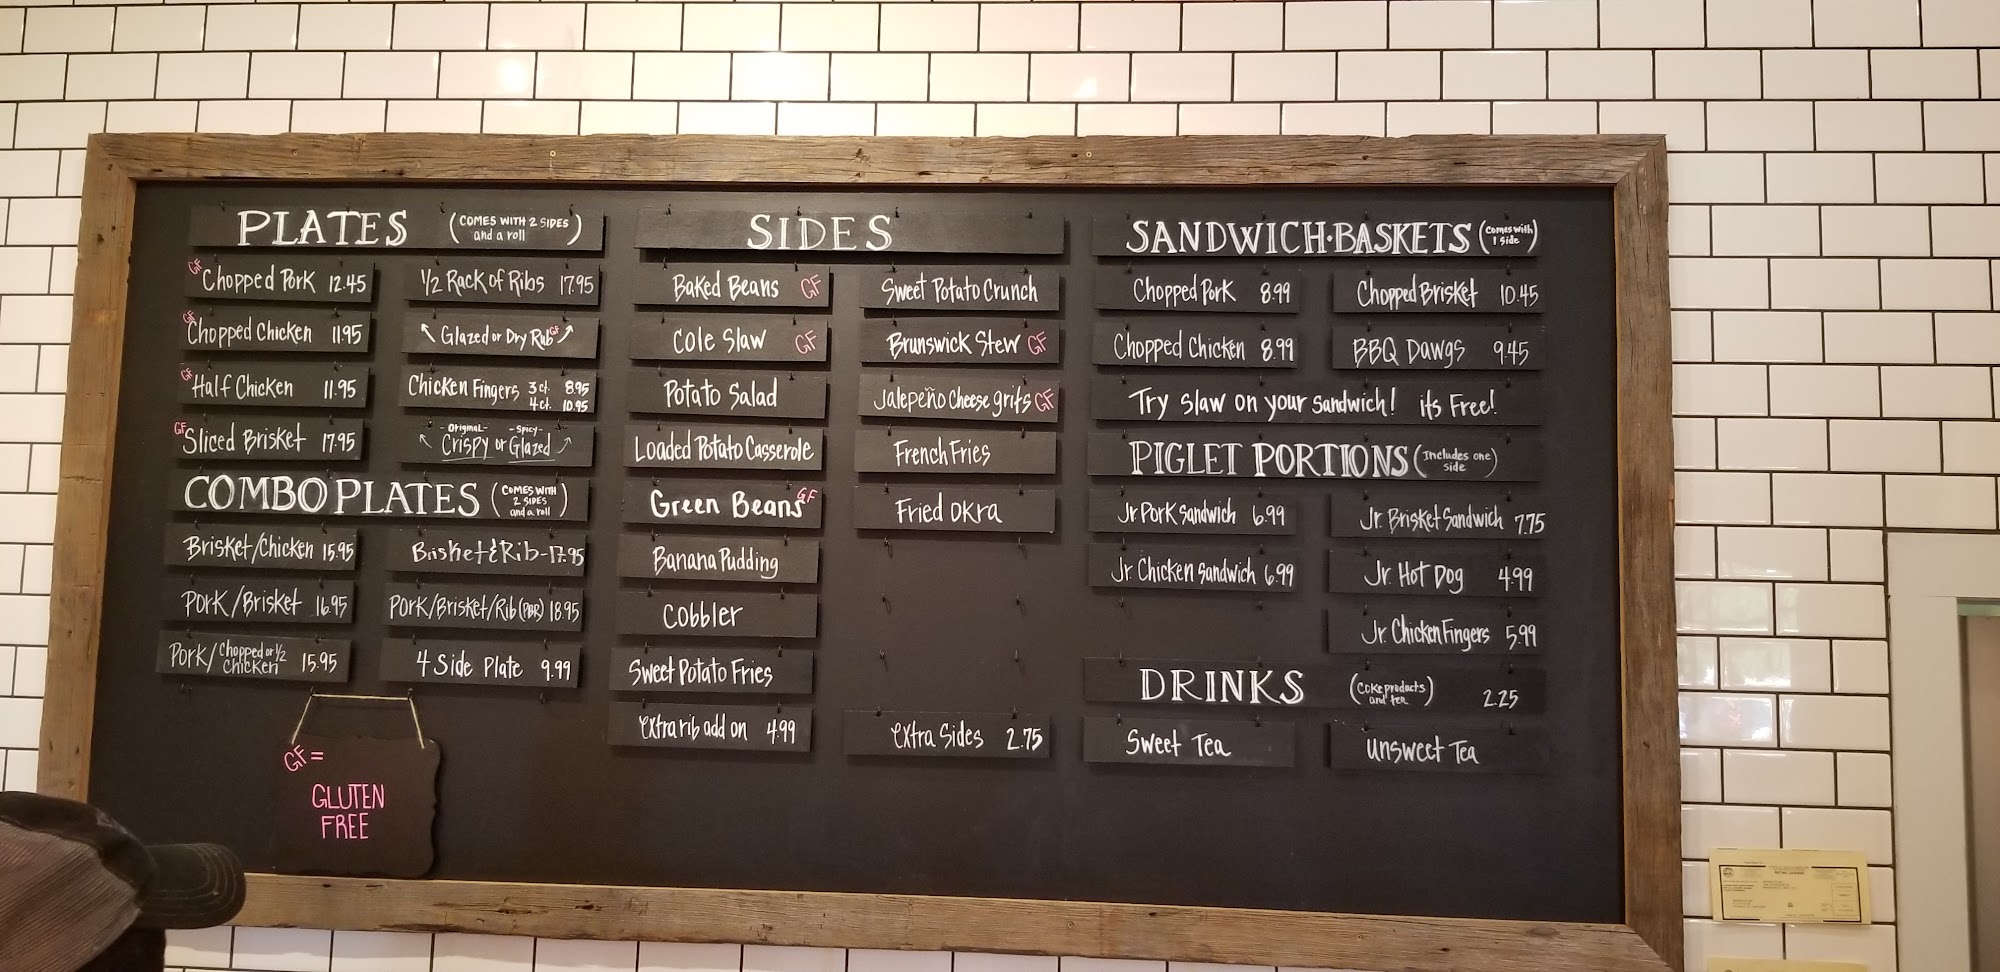 PLATES (COMES WITH 2 SIDES and a roll)
GF Chopped Pork 12.45
GF Chopped Chicken 11.95
GF Half Chicken 11.95
GF Sliced Brisket 17.95
1/2 Rack of Ribs 17.95
Glazed or Dry Rub GF
Chicken Fingers 3 ct. 8.95
4 ct. 10.95
-Original- -Spicy-
Crispy or Glazed
COMBO PLATES (COMES WITH 2 SIDES and a roll)
Brisket/Chicken 15.95
Pork/Brisket 16.95
Pork/Chopped or 1/2 Chicken 15.95
Brisket & Rib-17.95
Pork/Brisket/Rib (PBR) 18.95
4 Side Plate 9.99
GF =
GLUTEN
FREE
SIDES
Baked Beans GF
Cole Slaw GF
Potato Salad
Loaded Potato Casserole
Green Beans GF
Banana Pudding
Cobbler
Sweet Potato Fries
extra rib add on 4.99
Sweet Potato Crunch
Brunswick Stew GF
Jalepeño Cheese grits GF
French Fries
Fried Okra
extra Sides 2.75
SANDWICH·BASKETS (comes with 1 side)
Chopped Pork 8.99
Chopped Chicken 8.99
Chopped Brisket 10.45
BBQ Dawgs 9.45
Try slaw on your sandwich! its Free!
PIGLET PORTIONS (Includes one side)
Jr Pork Sandwich 6.99
Jr. Chicken Sandwich 6.99
Jr. Brisket Sandwich 7.75
Jr. Hot Dog 4.99
Jr. Chicken Fingers 5.99
DRINKS (Coke products and tea) 2.25
Sweet Tea
Unsweet Tea